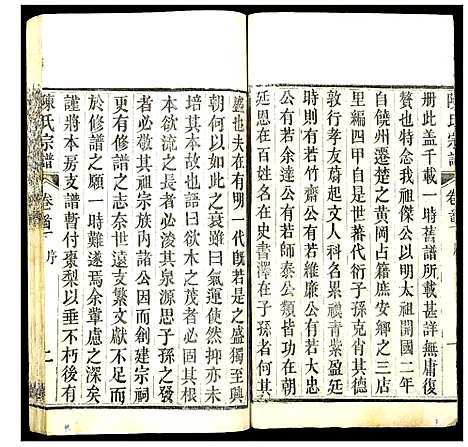 陳氏宗譜 卷首 序
册此盖千載一時舊譜所載甚詳無庸復
贅也特念我祖傑公以明太祖開國二年
自饒州遷楚之黃岡占籍庶安鄉之三店
里編四甲自是世蕃代衍子孫克肖孫
敦行孝友蔚起文人科名累禩青紫盈延
時則有若大賓公有若維廉公有若大忠
公有若余達公有若師泰公類皆功在朝
延恩在百姓名在史書澤在子孫者何其
盛也夫在有明一代旣若是之盛獨至興
朝何以莫之衰雖曰氣運使然抑亦未
培其本故也傳有之曰欲木之茂者必培其根
本欲流之長者必浚其泉源思子孫之發
者必敬其祖宗族內諸公因而創建宗祠
更有修譜之志奈世遠支繁文獻不足而
於修譜之願一時難遂焉余輩慮之深矣
謹將本房支譜暫付棗梨以垂不朽後有
陳氏宗譜 卷首 序 二